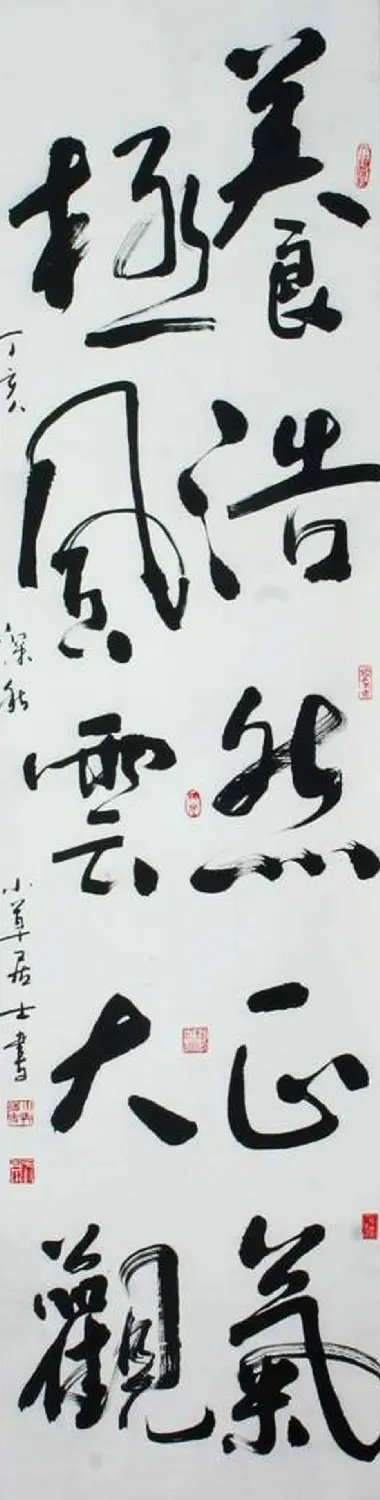 養浩然正氣
極風雲大觀
丁亥深秋小草居士書